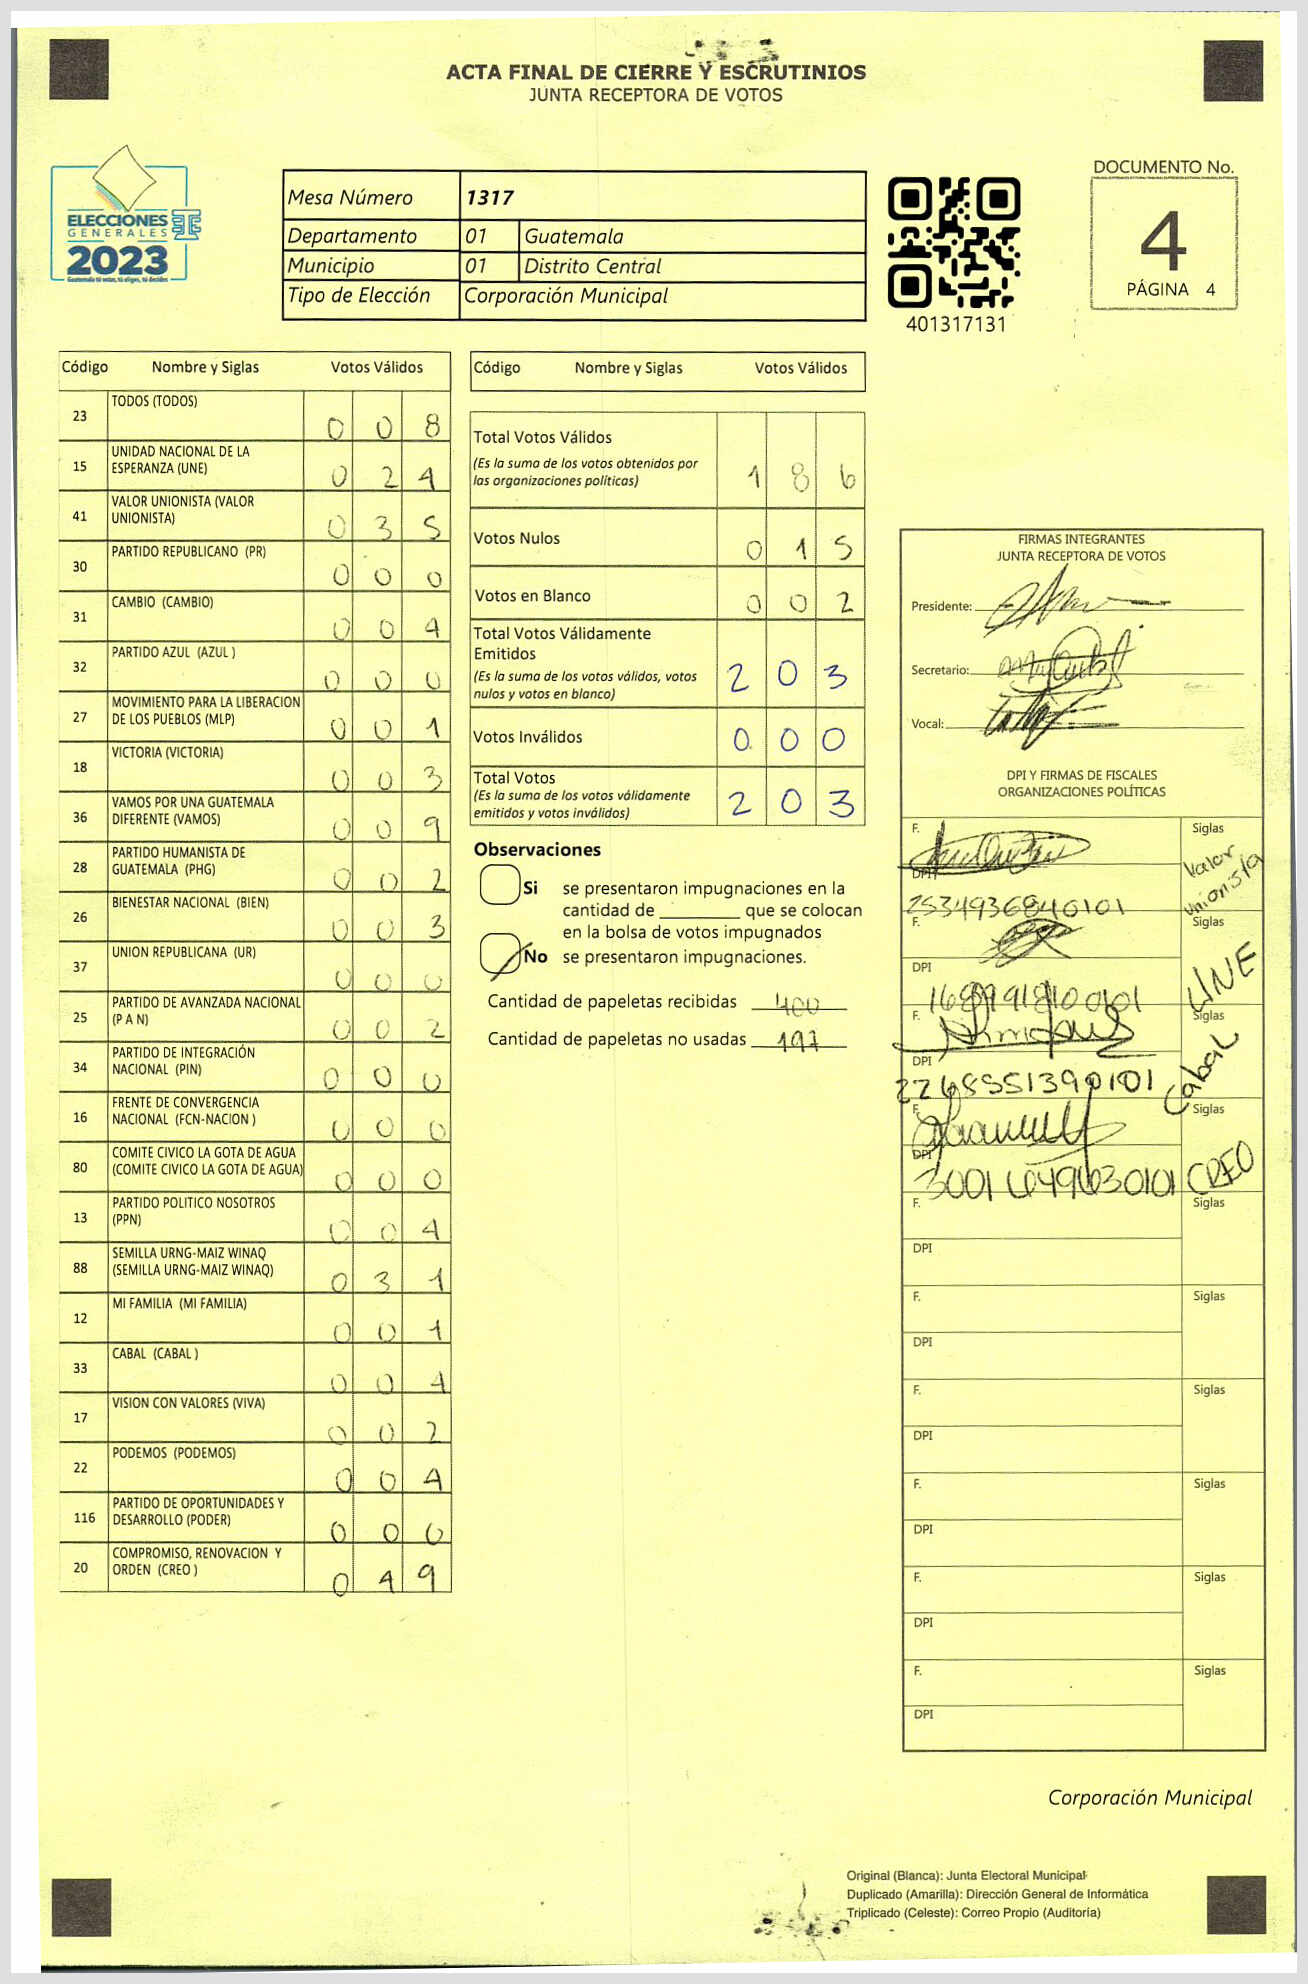 ACTA FINAL DE CIERRE Y ESCRUTINIOS
JUNTA RECEPTORA DE VOTOS
ELECCIONES
GENERALES
2023
Guatemala tú votas, tú eliges, tú decides
Mesa Número 1317
Departamento 01 Guatemala
Municipio 01 Distrito Central
Tipo de Elección Corporación Municipal
401317131
DOCUMENTO No.
4
PÁGINA 4
Código Nombre y Siglas Votos Válidos
23 TODOS (TODOS) 0 0 8
15 UNIDAD NACIONAL DE LA ESPERANZA (UNE) 0 2 4
41 VALOR UNIONISTA (VALOR UNIONISTA) 0 3 5
30 PARTIDO REPUBLICANO (PR) 0 0 0
31 CAMBIO (CAMBIO) 0 0 4
32 PARTIDO AZUL (AZUL ) 0 0 0
27 MOVIMIENTO PARA LA LIBERACION DE LOS PUEBLOS (MLP) 0 0 1
18 VICTORIA (VICTORIA) 0 0 3
36 VAMOS POR UNA GUATEMALA DIFERENTE (VAMOS) 0 0 9
28 PARTIDO HUMANISTA DE GUATEMALA (PHG) 0 0 2
26 BIENESTAR NACIONAL (BIEN) 0 0 3
37 UNION REPUBLICANA (UR) 0 0 0
25 PARTIDO DE AVANZADA NACIONAL (P A N) 0 0 2
34 PARTIDO DE INTEGRACIÓN NACIONAL (PIN) 0 0 0
16 FRENTE DE CONVERGENCIA NACIONAL (FCN-NACION ) 0 0 0
80 COMITE CIVICO LA GOTA DE AGUA (COMITE CIVICO LA GOTA DE AGUA) 0 0 0
13 PARTIDO POLITICO NOSOTROS (PPN) 0 0 4
88 SEMILLA URNG-MAIZ WINAQ (SEMILLA URNG-MAIZ WINAQ) 0 3 1
12 MI FAMILIA (MI FAMILIA) 0 0 1
33 CABAL (CABAL ) 0 0 4
17 VISION CON VALORES (VIVA) 0 0 2
22 PODEMOS (PODEMOS) 0 0 4
116 PARTIDO DE OPORTUNIDADES Y DESARROLLO (PODER) 0 0 0
20 COMPROMISO, RENOVACION Y ORDEN (CREO ) 0 4 9
Código Nombre y Siglas Votos Válidos
Total Votos Válidos 1 8 6
(Es la suma de los votos obtenidos por
las organizaciones políticas)
Votos Nulos 0 1 5
Votos en Blanco 0 0 2
Total Votos Válidamente
Emitidos 2 0 3
(Es la suma de los votos válidos, votos
nulos y votos en blanco)
Votos Inválidos 0 0 0
Total Votos 2 0 3
(Es la suma de los votos válidamente
emitidos y votos inválidos)
Observaciones
Si se presentaron impugnaciones en la
cantidad de ________ que se colocan
en la bolsa de votos impugnados
No se presentaron impugnaciones.
Cantidad de papeletas recibidas 400
Cantidad de papeletas no usadas 197
FIRMAS INTEGRANTES
JUNTA RECEPTORA DE VOTOS
Presidente:
Secretario:
Vocal:
DPI Y FIRMAS DE FISCALES
ORGANIZACIONES POLÍTICAS
F. Siglas
DPI Valor Unionista
2534936840101
F. Siglas
DPI UNE
F. Siglas
DPI Cabal
2268551390101
F. Siglas
DPI CREO
F. Siglas
DPI
F. Siglas
DPI
F. Siglas
DPI
F. Siglas
DPI
F. Siglas
DPI
F. Siglas
DPI
Corporación Municipal
Original (Blanca): Junta Electoral Municipal
Duplicado (Amarilla): Dirección General de Informática
Triplicado (Celeste): Correo Propio (Auditoría)